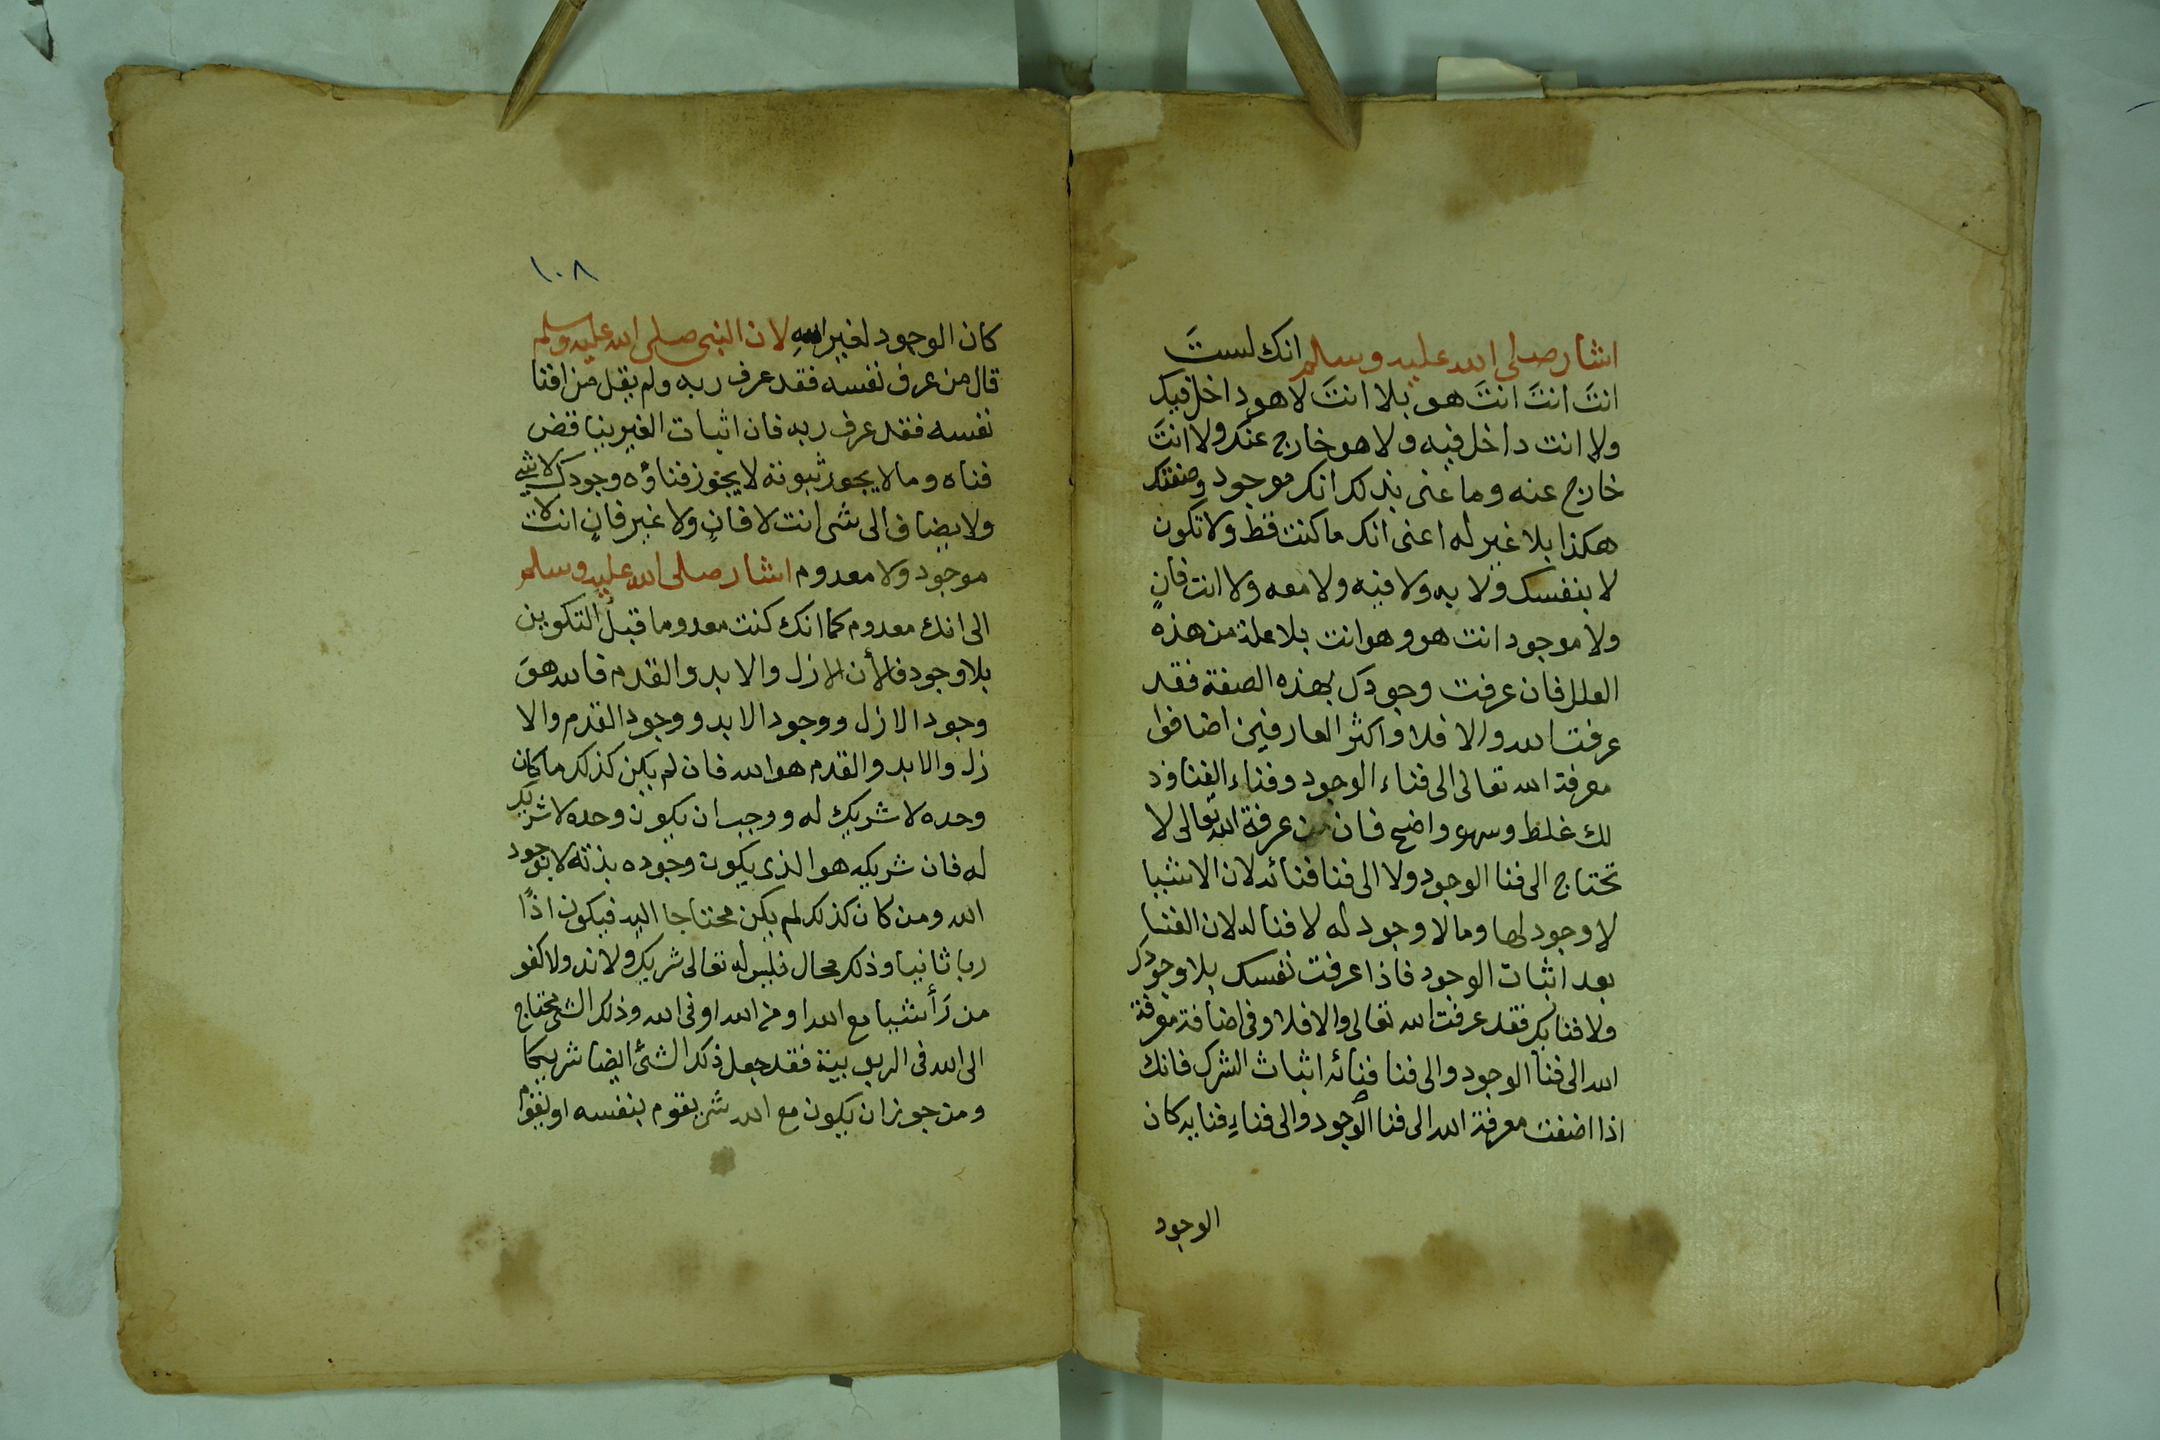 اشار صلى الله عليه وسلم انك لستَ
انتَ انتَ انتَ هو بلا انتَ لا هو داخل فيك
ولا انت داخل فيه ولا هو خارج عنك ولا انتَ
خارج عنه وما عنى بذلك انك موجود وصفتك
هكذا بلا غير له اعنى انك ما كنت قط ولا تكون
لا بنفسك ولا به ولا فيه ولا معه ولا انت فانٍ
ولا موجود انت هو وهو انت بلا علة من هذه
العلل فان عرفت وجودك بهذه الصفة فقد
عرفت الله والا فلا واكثر العارفين اضافوا
معرفة الله تعالى الى فناء الوجود وفناء الفنا وذ
لك غلط وسهو واضح فان من عرفة الله تعالى لا
تحتاج الى فنا الوجود ولا الى فنا فنائه لان الاشيا
لا وجود لها وما لا وجود له لا فنا له لان الفنا
بعد اثبات الوجود فاذا عرفت نفسك بلا وجودك
ولا فنا بك فقد عرفت الله تعالى والا فلا وفى اضافة معرفة
الله الى فنا الوجود والى فنا فنائه اثبات الشرك فانك
اذا اضفت معرفة الله الى فنا الوجود والى فناء فنايه كان
الوجود
١٠٨
كان الوجود لغير الله لان النبى صلى الله عليه وسلم
قال من عرف نفسه فقد عرف ربه ولم يقل من افنا
نفسه فقد عرف ربه فان اثبات الغير يناقض
فناه وما لا يجوز ثبوته لا يجوز فناؤه وجودك لا شى
ولا يضاف الى شى انت لا فانٍ ولا غير فانٍ انت لا
موجود ولا معدوم اشار صلى الله عليه وسلم
الى انك معدوم كما انك كنت معدوما قبل التكوين
بلا وجود فالأن الازل والابد والقدم فالله هوَ
وجود الازل ووجود الابد ووجود القدم والا
زل والابد والقدم هو الله فان لم يكن كذلك ما كان
وحده لا شريك له ووجب ان يكون وحده لا شريك
له فان شريكه هو الذى يكون وجوده بذته لا بوجود
الله ومن كان كذلك لم يكن محتاجا اليه فيكون اذًا
ربا ثانيا وذلك محال فليس له تعالى شريك ولا ند ولا كفو
من رَأ شيا مع الله او من الله او فى الله وذلك الشى محتاج
الى الله فى الربوبية فقد جعل ذلك الشئ ايضا شريكا
ومن جوز ان يكون مع الله شى يقوم بنفسه او يقوم